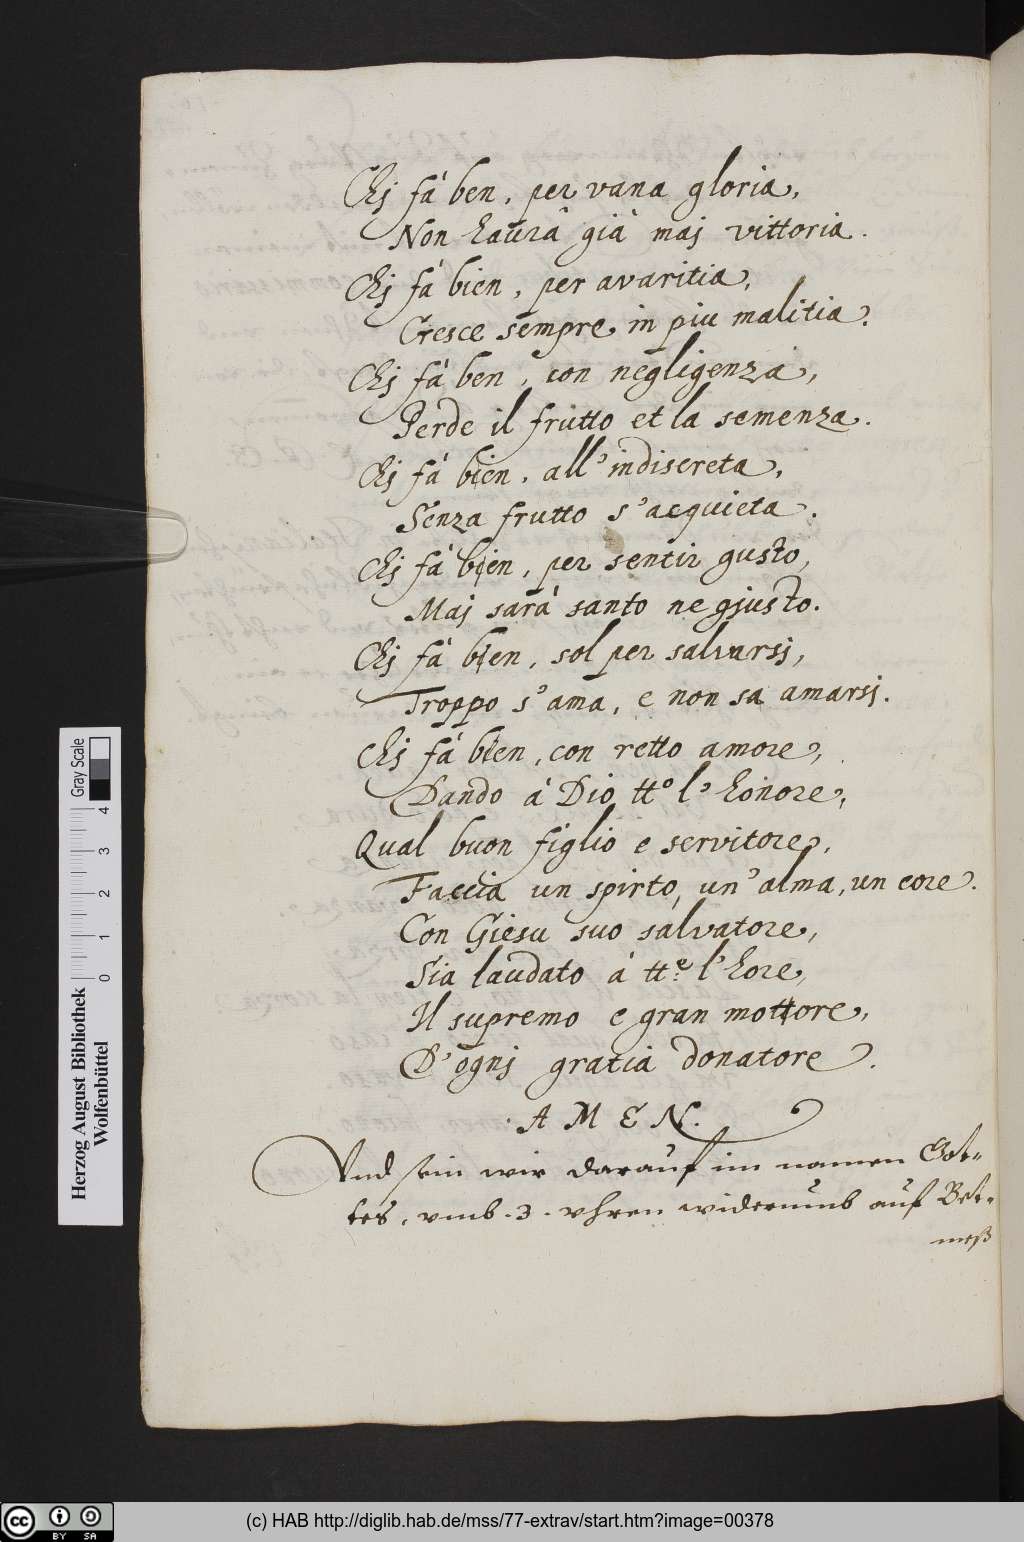 Chj fà ben, per vana gloria,
Non haurà già maj vittoria.
Chj fà bien, per avaritia,
Cresce sempre in piu malitia.
Chj fà ben, con negligenza,
Perde il frutto et la semenza.
Chj fà bien, all'indiscreta,
Senza frutto s'acquieta.
Chj fà bien, per sentir gusto,
Maj sarà santo ne gjusto.
Chj fà bien, sol per salvarsj,
Troppo s'ama, e non sa amarsj.
Chj fà bien, con retto amore,
Dando à Dio tto l'honore,
Qual buon figlio e servitore,
Faccia un spirto, un'alma, un core.
Con Giesu suo salvatore,
Sia laudato à tte l'hore,
Il supremo e gran mottore,
D'ognj gratia donatore.
AMEN.
Vnd sein wir darauf im namen Got-
tes, vmb .3. vhren widerumb auf Bet-
meß
Herzog August Bibliothek
Wolfenbüttel
Gray Scale
0 1 2 3 4
cc BY SA
(c) HAB http://diglib.hab.de/mss/77-extrav/start.htm?image=00378